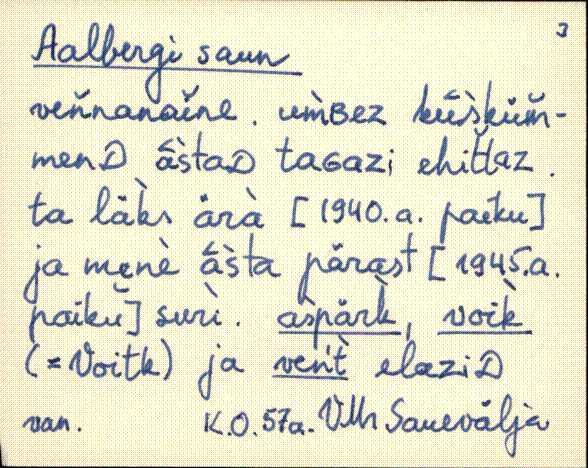 3
Aalbergi saun
veňnanaĭne. umʙez kūskŭm̆-
menᴅ āstaᴅ taɢazi ehiťťaz.
ta läks ärà [1940. a. paiku]
ja menè āsta pärast [1945. a.
paiku] suri. aspärk, voik
(= Voitk) ja veńt elaziᴅ
van. K.O. 57a. VMr Sauevälja